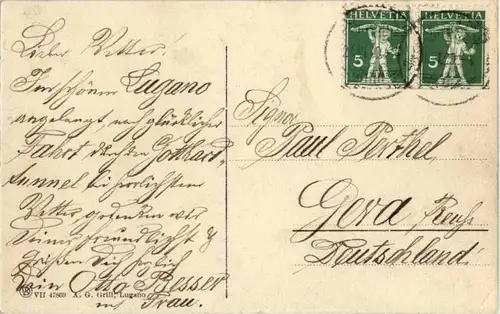 Lieber Vetter!
Im schönen Lugano
angelangt nach glücklicher
Fahrt durch den Gotthard-
tunnel bei herrlichstem
Wetter gedenken wir
Deiner freundlichst &
grüßen Dich herzlich
Dein Otto Besser
und Frau.
VII 47869 A. G. Grill, Lugano
HELVETIA HELVETIA
5 5
Signor
Paul Perthel,
Gera, Reuß
Deutschland.